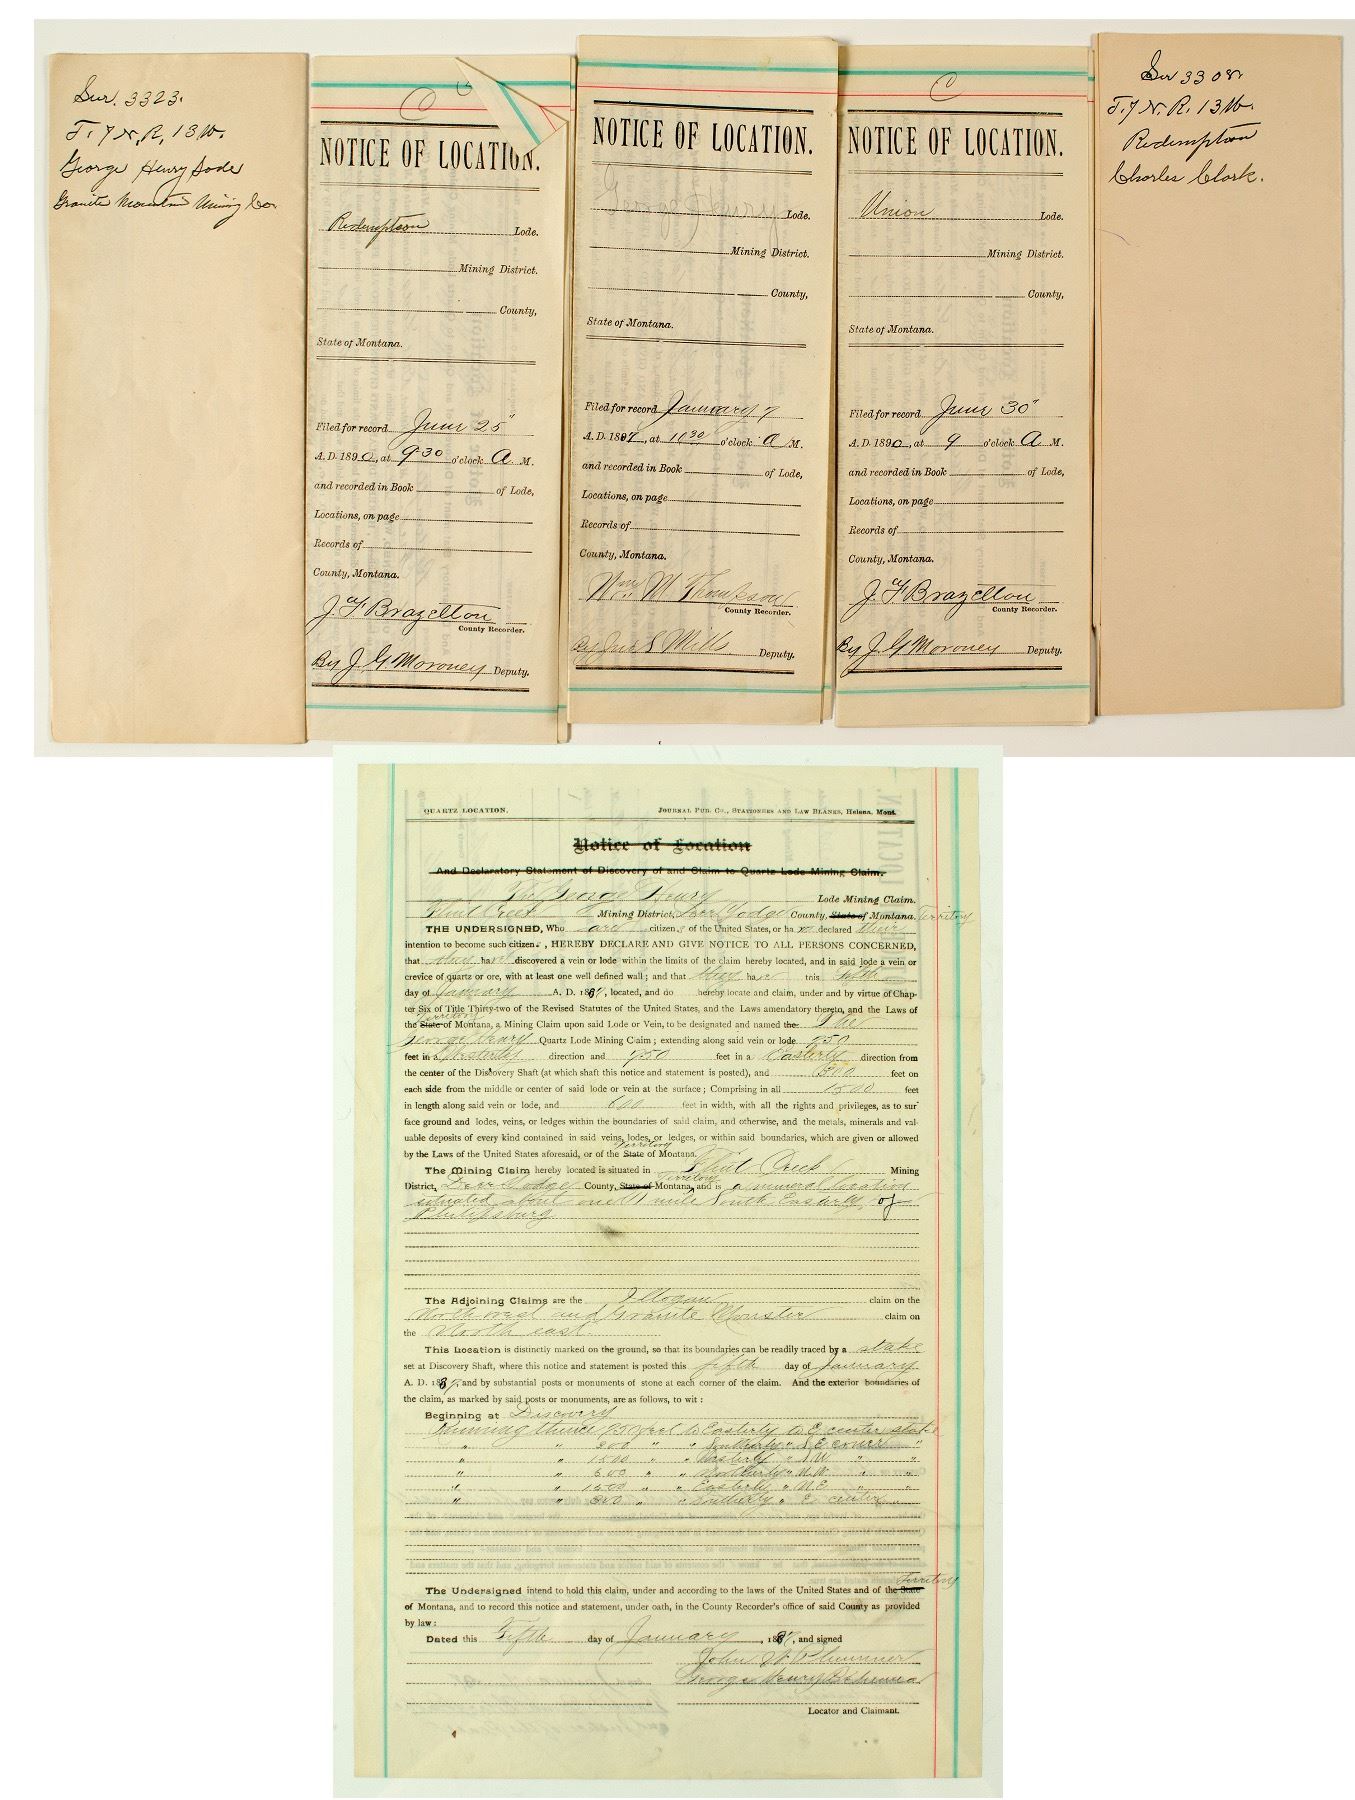 Sur. 3323.
T. 7 N. R. 13 W.
George Henry Lode
Granite Mountain Mining Co.
C
NOTICE OF LOCATION.
Redemption Lode.
Mining District.
County,
State of Montana.
Filed for record June 25"
A. D. 1890, at 9-30 o'clock A M.
and recorded in Book of Lode,
Locations, on page
Records of
County, Montana.
J. F Brazelton
County Recorder.
By J. G. Moroney Deputy.
NOTICE OF LOCATION.
George Henry Lode.
Mining District.
County,
State of Montana.
Filed for record January 7
A. D. 1887, at 10 30 o'clock A M.
and recorded in Book of Lode,
Locations, on page
Records of
County, Montana.
Wm M Thompson
County Recorder.
By Jno S Mills Deputy.
C
NOTICE OF LOCATION.
Union Lode.
Mining District.
County,
State of Montana.
Filed for record June 30"
A. D. 1890, at 9 o'clock A M.
and recorded in Book of Lode,
Locations, on page
Records of
County, Montana.
J. F Brazelton
County Recorder.
By J. G. Moroney Deputy.
Sur 3308.
T. 7 N. R. 13 W.
Redemption
Charles Clark.
QUARTZ LOCATION. JOURNAL PUB. CO., STATIONERS AND LAW BLANKS, Helena, Mont.
Notice of Location
And Declaratory Statement of Discovery of and Claim to Quartz Lode Mining Claim.
The George Henry Lode Mining Claim.
Flint Creek Mining District, Deer Lodge County, State of Montana. Territory
THE UNDERSIGNED, Who are citizens of the United States, or ha ve declared their
intention to become such citizen. , HEREBY DECLARE AND GIVE NOTICE TO ALL PERSONS CONCERNED,
that they have discovered a vein or lode within the limits of the claim hereby located, and in said lode a vein or
crevice of quartz or ore, with at least one well defined wall; and that they have this fifth
day of January A. D. 1887, located, and do hereby locate and claim, under and by virtue of Chap-
ter Six of Title Thirty-two of the Revised Statutes of the United States, and the Laws amendatory thereto, and the Laws of
Territory
the State of Montana, a Mining Claim upon said Lode or Vein, to be designated and named the The
George Henry Quartz Lode Mining Claim; extending along said vein or lode 750
feet in a Westerly direction and 750 feet in a Easterly direction from
the center of the Discovery Shaft (at which shaft this notice and statement is posted), and 300 feet on
each side from the middle or center of said lode or vein at the surface; Comprising in all 1500 feet
in length along said vein or lode, and 600 feet in width, with all the rights and privileges, as to sur
face ground and lodes, veins, or ledges within the boundaries of said claim, and otherwise, and the metals, minerals and val-
uable deposits of every kind contained in said veins, lodes, or ledges, or within said boundaries, which are given or allowed
Territory
by the Laws of the United States aforesaid, or of the State of Montana.
The Mining Claim hereby located is situated in Flint Creek Mining
Territory
District, Deer Lodge County, State of Montana, and is a mineral location
situated about one (1) mile South Easterly of
Philipsburg
The Adjoining Claims are the J Logan claim on the
North west and Granite Monster claim on
the North east.
This Location is distinctly marked on the ground, so that its boundaries can be readily traced by a stake
set at Discovery Shaft, where this notice and statement is posted this fifth day of January
A. D. 1887, and by substantial posts or monuments of stone at each corner of the claim. And the exterior boundaries of
the claim, as marked by said posts or monuments, are as follows, to wit:
Beginning at Discovery
Running thence 750 feet to Easterly to E center stake
" " 300 " " Southerly " S E corner "
" " 1500 " " Westerly " S W " "
" " 600 " " Northerly " N W " "
" " 1500 " " Easterly " N E " "
" " 300 " " Southerly " E center
Territory
The Undersigned intend to hold this claim, under and according to the laws of the United States and of the State
of Montana, and to record this notice and statement, under oath, in the County Recorder's office of said County as provided
by law:
Dated this Fifth day of January, 1887, and signed
John W Plummer
George Henry
Locator and Claimant.